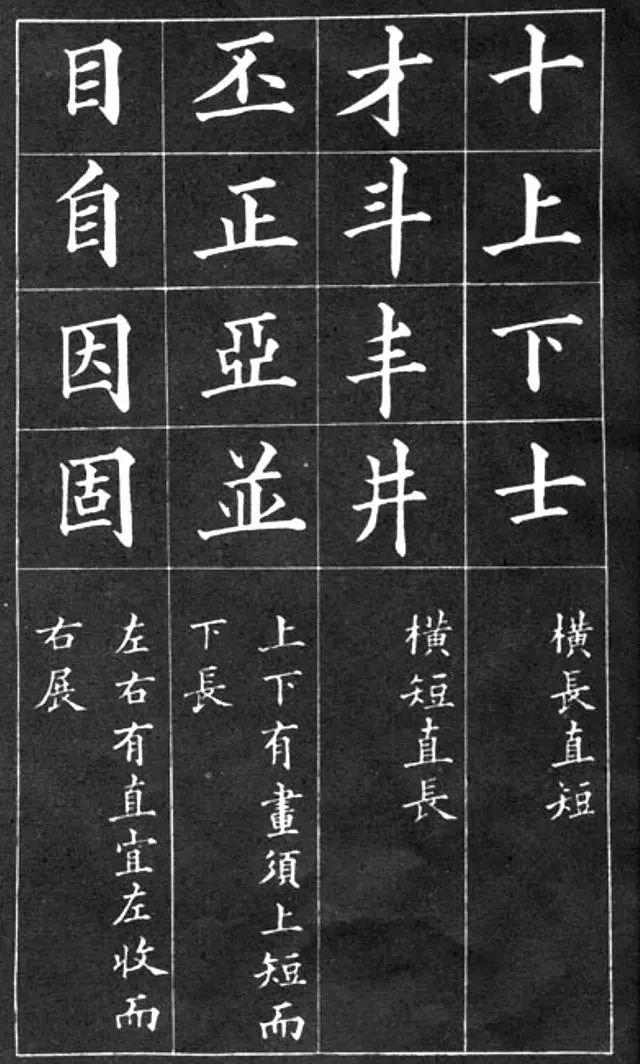 十上下士
橫長直短
才斗丰井
橫短直長
丕正亞並
上下有畫須上短而
下長
目自因固
左右有直宜左收而
右展